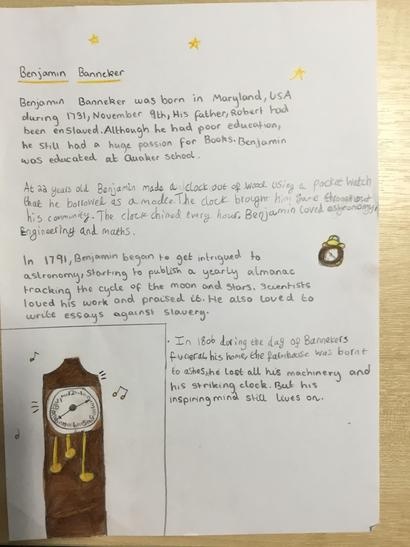 Benjamin Banneker
Benjamin Banneker was born in Maryland, USA
during 1731, November 9th, His father, Robert had
been enslaved. Although he had poor education,
he still had a huge passion for Books. Benjamin
was educated at Quaker School.
At 22 years old Benjamin made a clock out of wood using a pocket watch
that he borrowed as a model. The clock brought him fame throughout
his community. The clock chimed every hour, Benjamin loved astronomy,
Engineering and maths.
In 1791, Benjamin began to get intrigued to
astronomy, starting to publish a yearly almanac
tracking the cycle of the moon and stars. Scientists
loved his work and praised it. He also loved to
write essays against slavery.
· In 1806 during the day of Bannekers
funeral, his home, the farmhouse was burnt
to ashes, he lost all his machinery and
his striking clock. But his
inspiring mind still lives on.